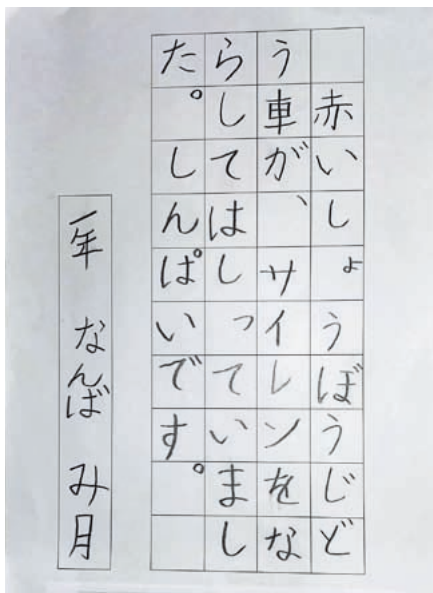 赤いしょうぼうじど
う車が、サイレンをな
らしてはしっていまし
た。しんぱいです。
一年　なんば　み月